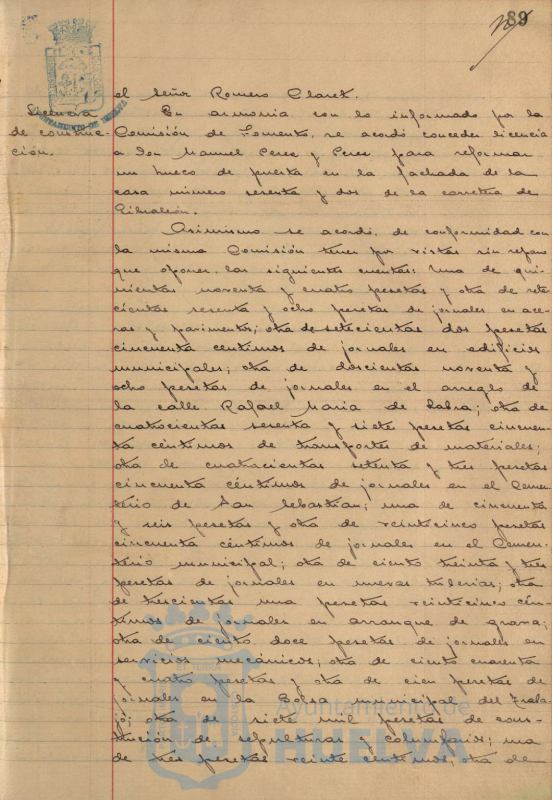 89
AYUNTAMIENTO DE HUELVA
el Señor Romero Claret.
Licencia
de construc-
ción.
En armonía con lo informado por la
Comisión de Fomento, se acordó conceder licencia
a Don Manuel Perez y Perez para reformar
un hueco de puerta en la fachada de la
casa número sesenta y dos de la carretera de
Gibraleón.
Asimismo se acordó, de conformidad con
la misma Comisión tener por vistas sin reparo
que oponer, las siguientes cuentas: Una de qui-
nientas noventa y cuatro pesetas y otra de sete-
cientas sesenta y ocho pesetas de jornales en ace-
ras y pavimentos; otra de setecientas dos pesetas
cincuenta centimos de jornales en edificios
municipales; otra de doscientas noventa y
ocho pesetas de jornales en el arreglo de
la calle Rafael Maria de Labra; otra de
cuatrocientas sesenta y siete pesetas cincuen-
ta céntimos de transportes de materiales;
otra de cuatrocientas setenta y tres pesetas
cincuenta céntimos de jornales en el Cemen-
terio de San Sebastian; una de cincuenta
y seis pesetas y otra de veinticinco pesetas
cincuenta céntimos de jornales en el Cemen-
terio municipal; otra de ciento treinta y tres
pesetas de jornales en nuevas tuberias; otra
de trescientas una pesetas veinticinco cén-
timos de jornales en arranque de grava;
otra de ciento doce pesetas de jornales en
servicios mecánicos; otra de ciento cuarenta
y cuatro pesetas y otra de cien pesetas de
jornales en la Bolsa municipal del Traba-
jo; otra de siete mil pesetas de cons-
trucción de sepulturas y columbarios; una
de tres pesetas veinte centimos, otra de
Ayuntamiento de
HUELVA